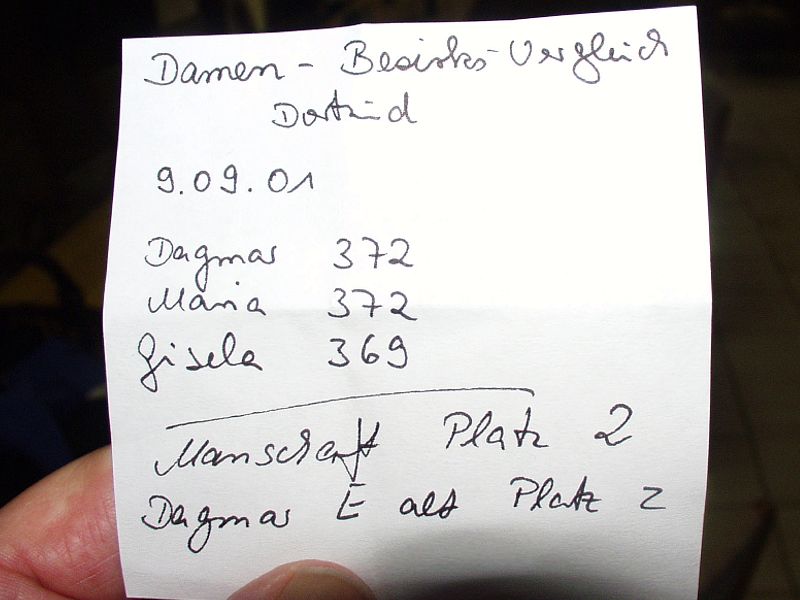 Damen - Bezirks-Vergleich
Dortmund
9.09.01
Dagmar 372
Maria 372
Gisela 369
Manschaft Platz 2
Dagmar E alt Platz 2